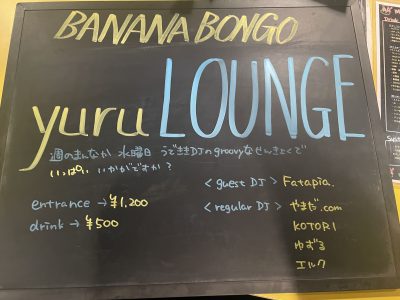 BANANA BONGO
yuru LOUNGE
週のまんなか 水曜日 うでききDJのgroovyなせんきょくで
いっぱい いかがですか?
entrance → ¥1,200
drink → ¥500
<guest DJ> Fatapia.
<regular DJ> やまだ.com
KOTORI
ゆずる
エルク